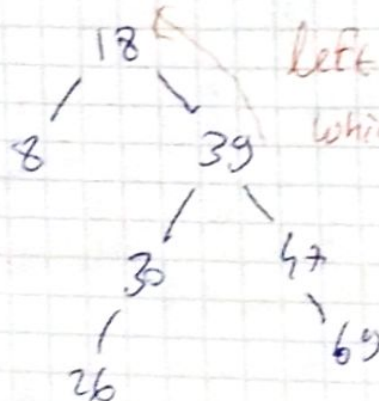 18 left
8 39
30 47
26 69